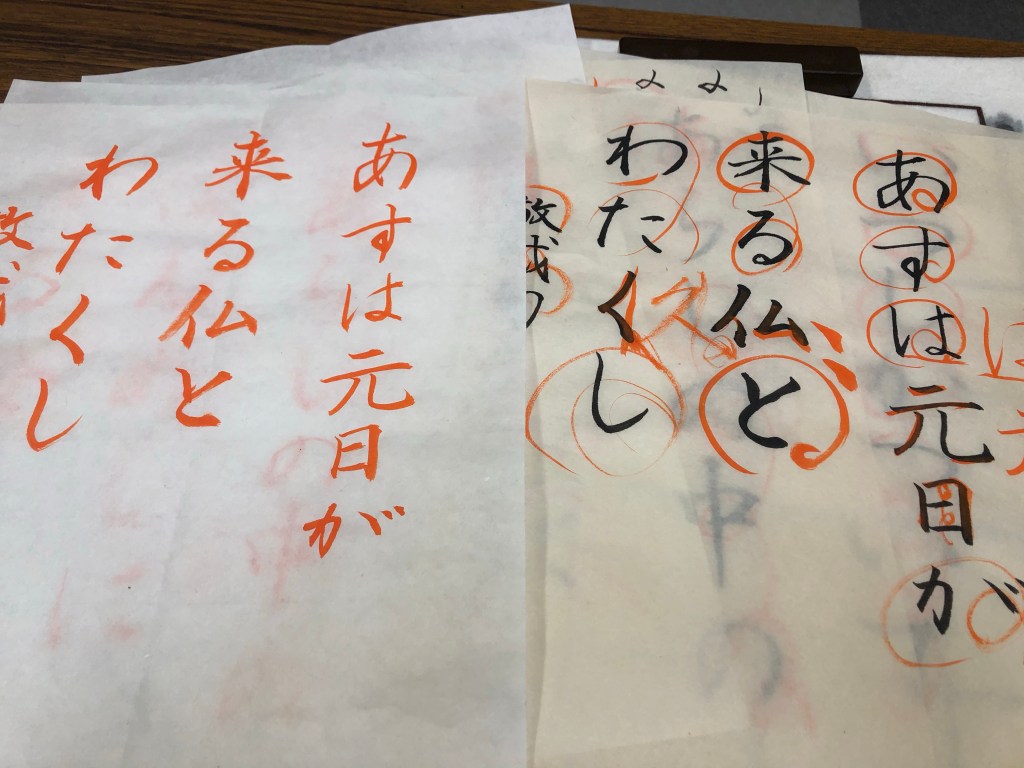 あすは元日が
来る仏と
わたくし
あすは元日が
来る仏と
わたくし
は